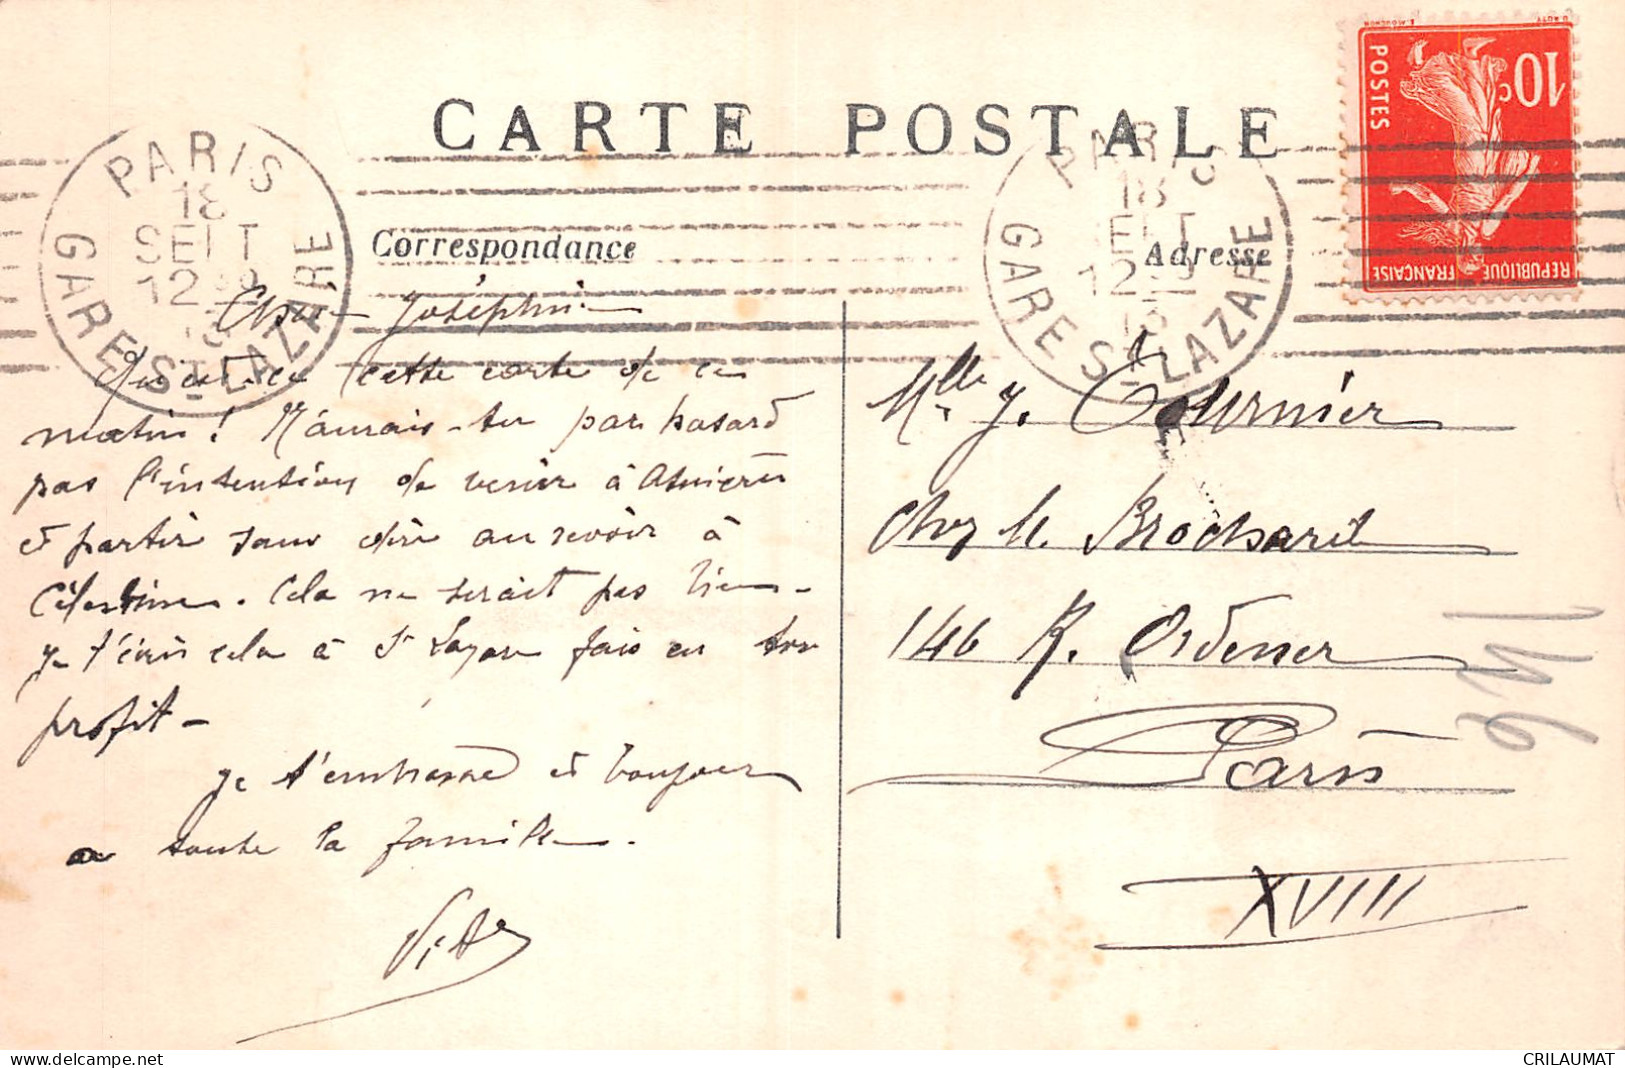 CARTE POSTALE
Correspondance
Adresse
PARIS
18
SEPT
12
GARE ST-LAZARE
PARIS
18
SEPT
12
13
GARE ST-LAZARE
10c
POSTES
REPUBLIQUE
FRANÇAISE
E. MOUCHON
Chère Joséphine
Qu'est-ce cette carte de ce
matin! N'aurais-tu par hasard
pas l'intention de venir à Asnières
et partir sans dire au revoir à
Célestine. Cela ne serait pas bien -
je t'écris cela à St Lazare fais en ton
profit -
Je t'embrasse et bonjour
a toute la famille.
Mlle J. Fournier
chez M. Brochard
146 R. Ordener
Paris
XVIII
146
CRILAUMAT